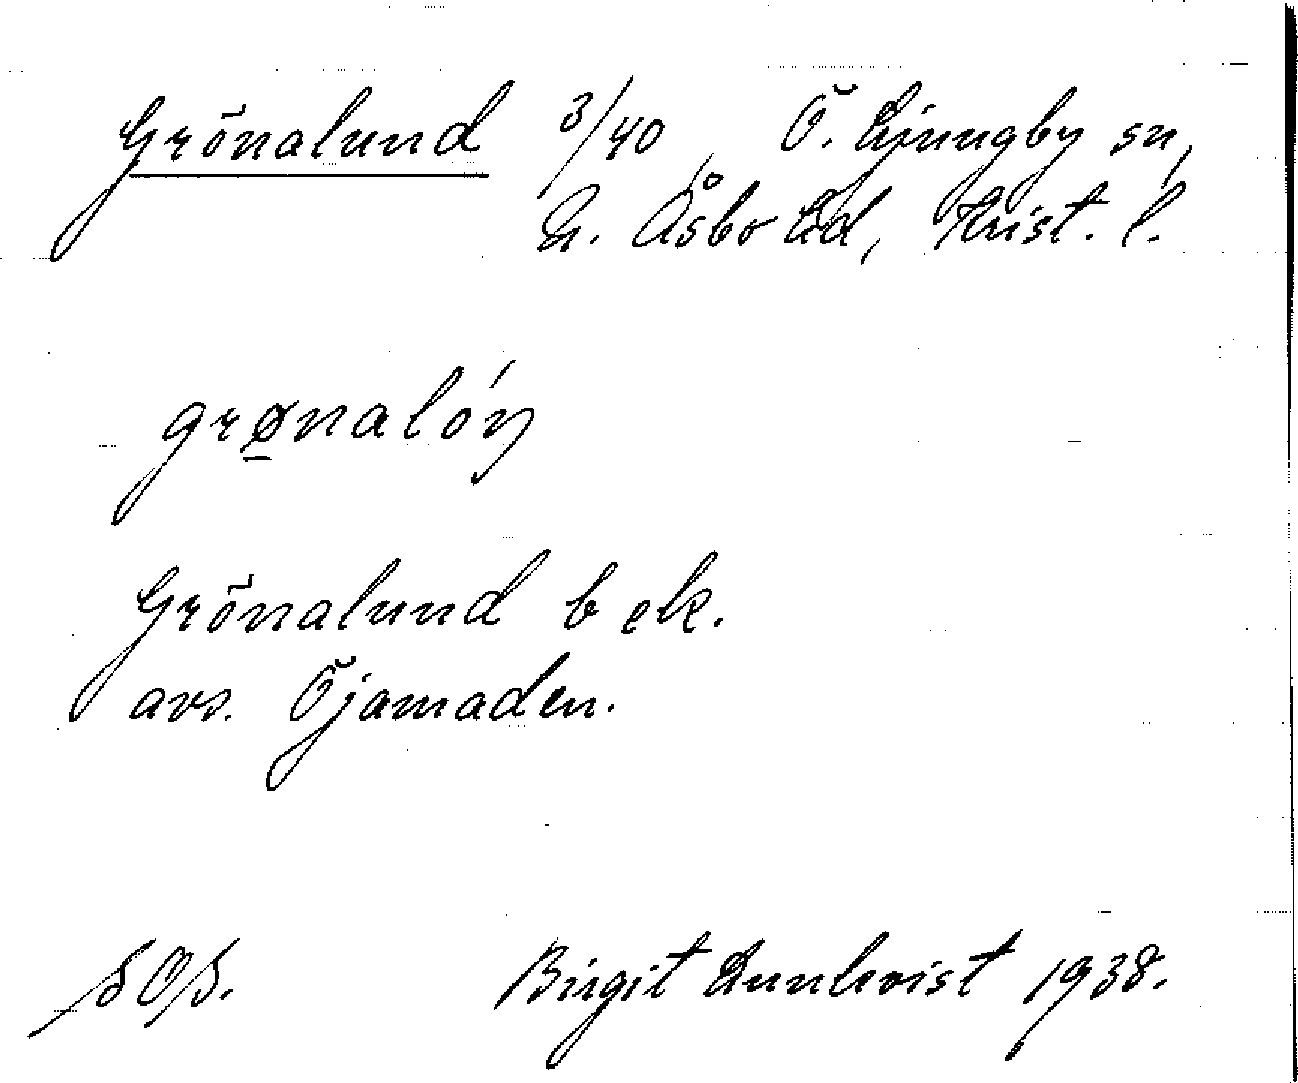 Grönalund 3/40, Ö. Ljungby sn,
N. Åsbo hd, Krist. l.
grønalón
Grönalund b ek.
avs. Öjamaden.
Birgit Lunkvist 1938.